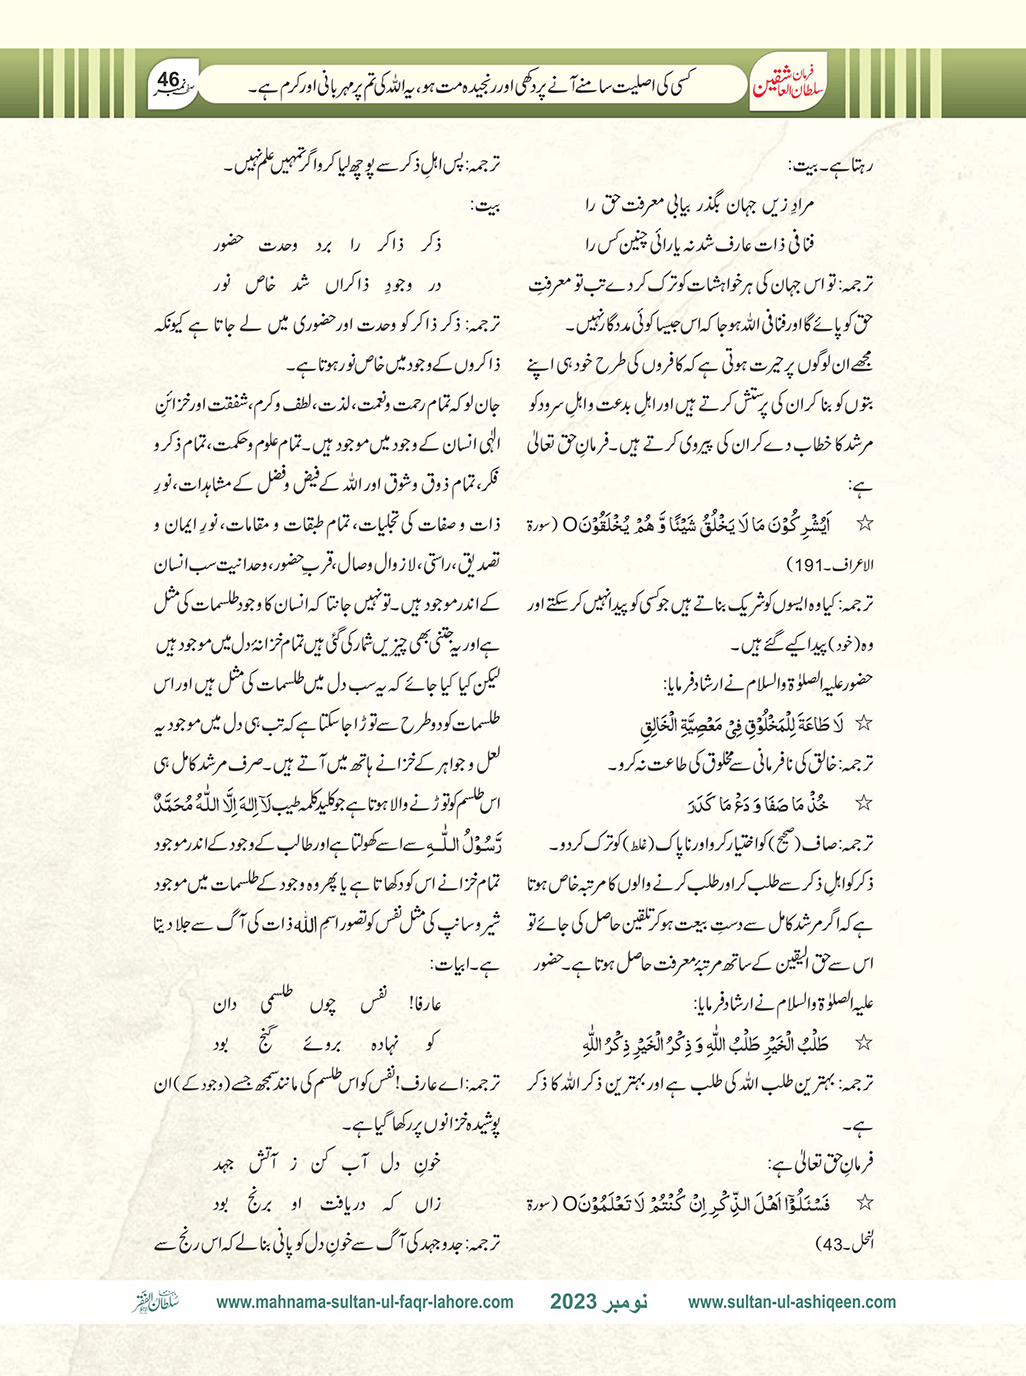 فرمان سلطان العاشقین
کسی کی اصلیت سامنے آنے پر دکھی اور رنجیدہ مت ہو، یہ اللہ کی تم پر مہربانی اور کرم ہے۔
صفحہ نمبر 46
رہتا ہے۔ بیت:
مرادِ زیں جہان بگذر بیابی معرفت حق را
فنا فی ذات عارف شد نہ یارائی چنین کس را
ترجمہ: تو اس جہان کی ہر خواہشات کو ترک کر دے تب تو معرفتِ
حق کو پائے گا اور فنا فی اللہ ہو جا کہ اس جیسا کوئی مددگار نہیں۔
مجھے ان لوگوں پر حیرت ہوتی ہے کہ کافروں کی طرح خود ہی اپنے
بتوں کو بنا کر ان کی پرستش کرتے ہیں اور اہلِ بدعت و اہلِ سرود کو
مرشد کا خطاب دے کر ان کی پیروی کرتے ہیں۔ فرمانِ حق تعالیٰ
ہے:
☆ اَیُشْرِکُوْنَ مَا لَا یَخْلُقُ شَیْئًا وَّ ہُمْ یُخْلَقُوْنَO (سورۃ
الاعراف۔191)
ترجمہ: کیا وہ ایسوں کو شریک بناتے ہیں جو کسی کو پیدا نہیں کر سکتے اور
وہ (خود) پیدا کیے گئے ہیں۔
حضور علیہ الصلوٰۃ والسلام نے ارشاد فرمایا:
☆ لَا طَاعَۃَ لِلْمَخْلُوْقِ فِیْ مَعْصِیَّۃِ الْخَالِقِ
ترجمہ: خالق کی نافرمانی سے مخلوق کی طاعت نہ کرو۔
☆ خُذْ مَا صَفَا وَ دَعْ مَا کَدَرَ
ترجمہ: صاف (صحیح) کو اختیار کرو اور ناپاک (غلط) کو ترک کر دو۔
ذکر کو اہلِ ذکر سے طلب کر اور طلب کرنے والوں کا مرتبہ خاص ہوتا
ہے کہ اگر مرشد کامل سے دستِ بیعت ہو کر تلقین حاصل کی جائے تو
اس سے حق الیقین کے ساتھ مرتبۂ معرفت حاصل ہوتا ہے۔ حضور
علیہ الصلوٰۃ والسلام نے ارشاد فرمایا:
☆ طَلْبُ الْخَیْرِ طَلْبُ اللّٰہِ وَ ذِکْرُ الْخَیْرِ ذِکْرُ اللّٰہِ
ترجمہ: بہترین طلب اللہ کی طلب ہے اور بہترین ذکر اللہ کا ذکر
ہے۔
فرمانِ حق تعالیٰ ہے:
☆ فَسْئَلُوْٓا اَھْلَ الذِّکْرِ اِنْ کُنْتُمْ لَا تَعْلَمُوْنَO (سورۃ
النحل۔43)
ترجمہ: پس اہلِ ذکر سے پوچھ لیا کرو اگر تمہیں علم نہیں۔
بیت:
ذکر ذاکر را برد وحدت حضور
در وجودِ ذاکراں شد خاص نور
ترجمہ: ذکر ذاکر کو وحدت اور حضوری میں لے جاتا ہے کیونکہ
ذاکروں کے وجود میں خاص نور ہوتا ہے۔
جان لو کہ تمام رحمت و نعمت، لذت، لطف و کرم، شفقت اور خزائنِ
الٰہی انسان کے وجود میں موجود ہیں۔ تمام علوم و حکمت، تمام ذکر و
فکر، تمام ذوق و شوق اور اللہ کے فیض و فضل کے مشاہدات، نورِ
ذات و صفات کی تجلیات، تمام طبقات و مقامات، نورِ ایمان و
تصدیق، راستی، لازوال وصال، قربِ حضور، وحدانیت سب انسان
کے اندر موجود ہیں۔ تو نہیں جانتا کہ انسان کا وجود طلسمات کی مثل
ہے اور یہ جتنی بھی چیزیں شمار کی گئی ہیں تمام خزانۂ دل میں موجود ہیں
لیکن کیا کیا جائے کہ یہ سب دل میں طلسمات کی مثل ہیں اور اس
طلسمات کو دو طرح سے توڑا جا سکتا ہے کہ تب ہی دل میں موجود یہ
لعل و جواہر کے خزانے ہاتھ میں آتے ہیں۔ صرف مرشد کامل ہی
اس طلسم کو توڑنے والا ہوتا ہے جو کلید کلمہ طیب لَآ اِلٰہَ اِلَّا اللّٰہُ مُحَمَّدٌ
رَّسُوْلُ اللّٰہِ سے اسے کھولتا ہے اور طالب کے وجود کے اندر موجود
تمام خزانے اس کو دکھاتا ہے یا پھر وہ وجود کے طلسمات میں موجود
شیر و سانپ کی مثل نفس کو تصور اسمِ اللہ ذات کی آگ سے جلا دیتا
ہے۔ ابیات:
عارفا! نفس چوں طلسمی دان
کو نہادہ بروئے گنج بود
ترجمہ: اے عارف! نفس کو اس طلسم کی مانند سمجھ جسے (وجود کے) ان
پوشیدہ خزانوں پر رکھا گیا ہے۔
خونِ دل آب کن ز آتش جہد
زاں کہ دریافت او برنج بود
ترجمہ: جدوجہد کی آگ سے خونِ دل کو پانی بنا لے کہ اس رنج سے
سلطان الفقر www.mahnama-sultan-ul-faqr-lahore.com نومبر 2023 www.sultan-ul-ashiqeen.com